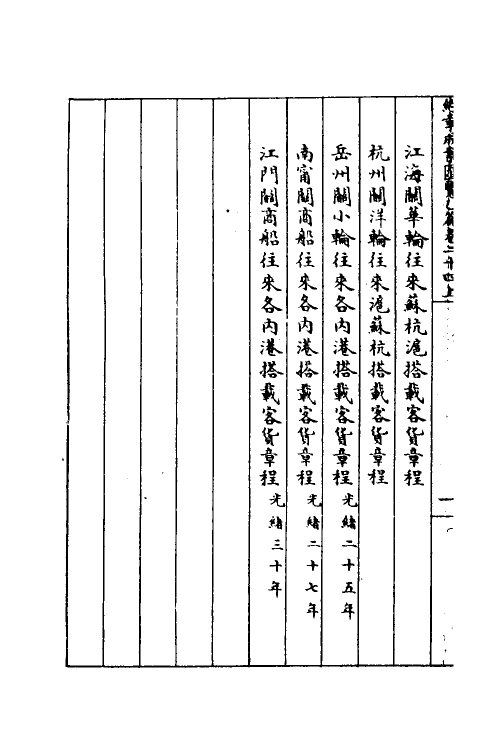 江海關華輪往來蘇杭滬搭載客貨章程
杭州關洋輪往來滬蘇杭搭載客貨章程
岳州關小輪往來各內港搭載客貨章程光緒二十五年
南甯關商船往來各內港搭載客貨章程光緒二十七年
江門關商船往來各內港搭載客貨章程光緒三十年